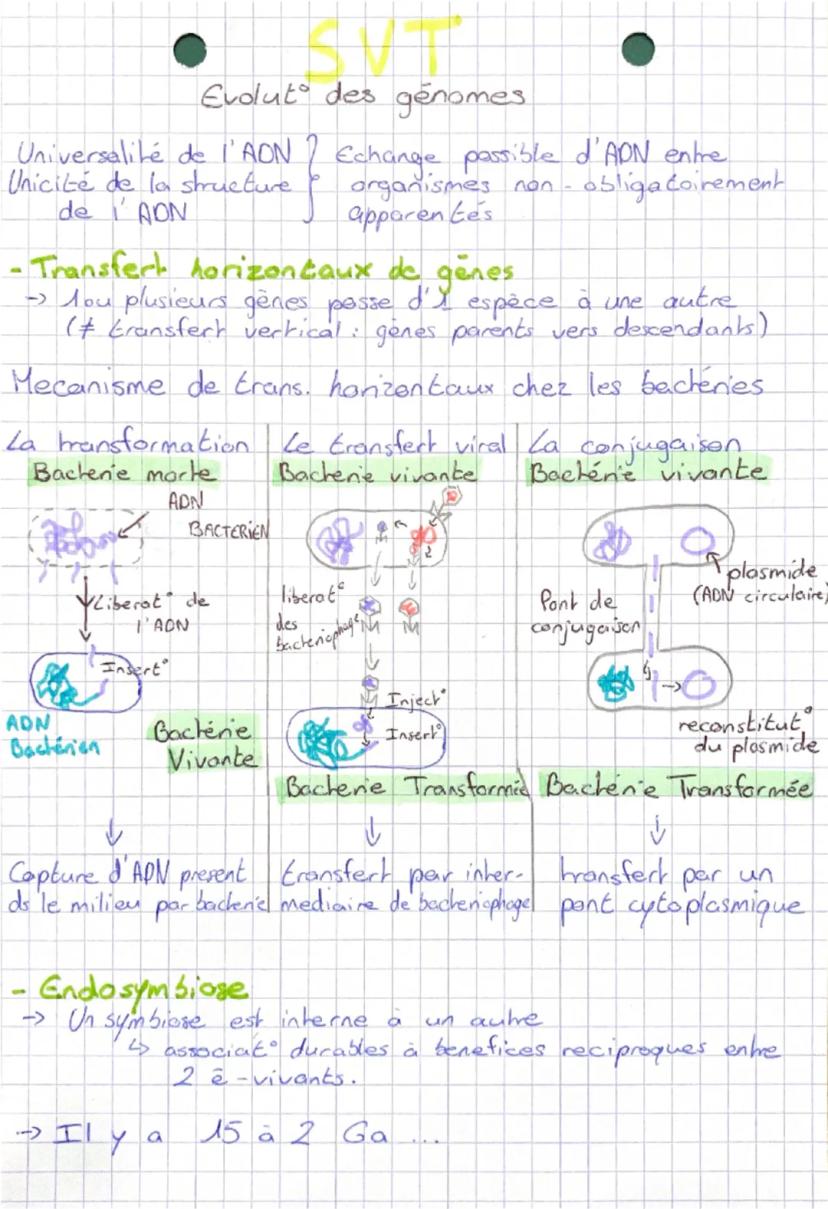 SVT
Evolut° des génomes
Universalité de l'ADN } Echange possible d'ADN entre
Unicité de la structure organismes non-obligatoirement
de l'ADN apparentés
- Transfert horizontaux de gènes
-> 1ou plusieurs gènes passe d'1 espèce à une autre
(≠ transfert vertical : gènes parents vers descendants)
Mecanisme de trans. horizontaux chez les bactéries
La transformation
Bacterie morte
ADN
BACTERIEN
Liberat° de
l'ADN
Insert°
ADN
Bactérien
Bactérie
Vivante
↓
Capture d'ADN present
ds le milieu par bacterie
Le transfert viral
Bacterie vivante
liberat°
des
bacteriophage
Inject°
Insert°
Bacterie Transformée
↓
transfert par inter-
mediaire de bacteriophage
La conjugaison
Bactérie vivante
plasmide
(ADN circulaire)
Pont de
conjugaison
reconstitut°
du plasmide
Bactérie Transformée
↓
transfert par un
pont cytoplasmique
- Endosymbiose
-> Un symbiose est interne à un autre
↳ associat° durables à benefices reciproques entre
2 ê-vivants.
-> Il y a 15 à 2 Ga ...